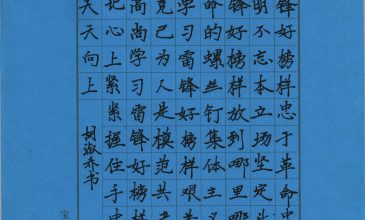 锋好榜样忠于革命忠
明不忘本立场坚定斗
锋好榜样放到哪里哪
命的螺丝钉集体主义
学习雷锋好榜样艰
克己为人是模范共
高尚学习雷锋好榜样
记心上紧紧握住手中
天天向上
书
宝